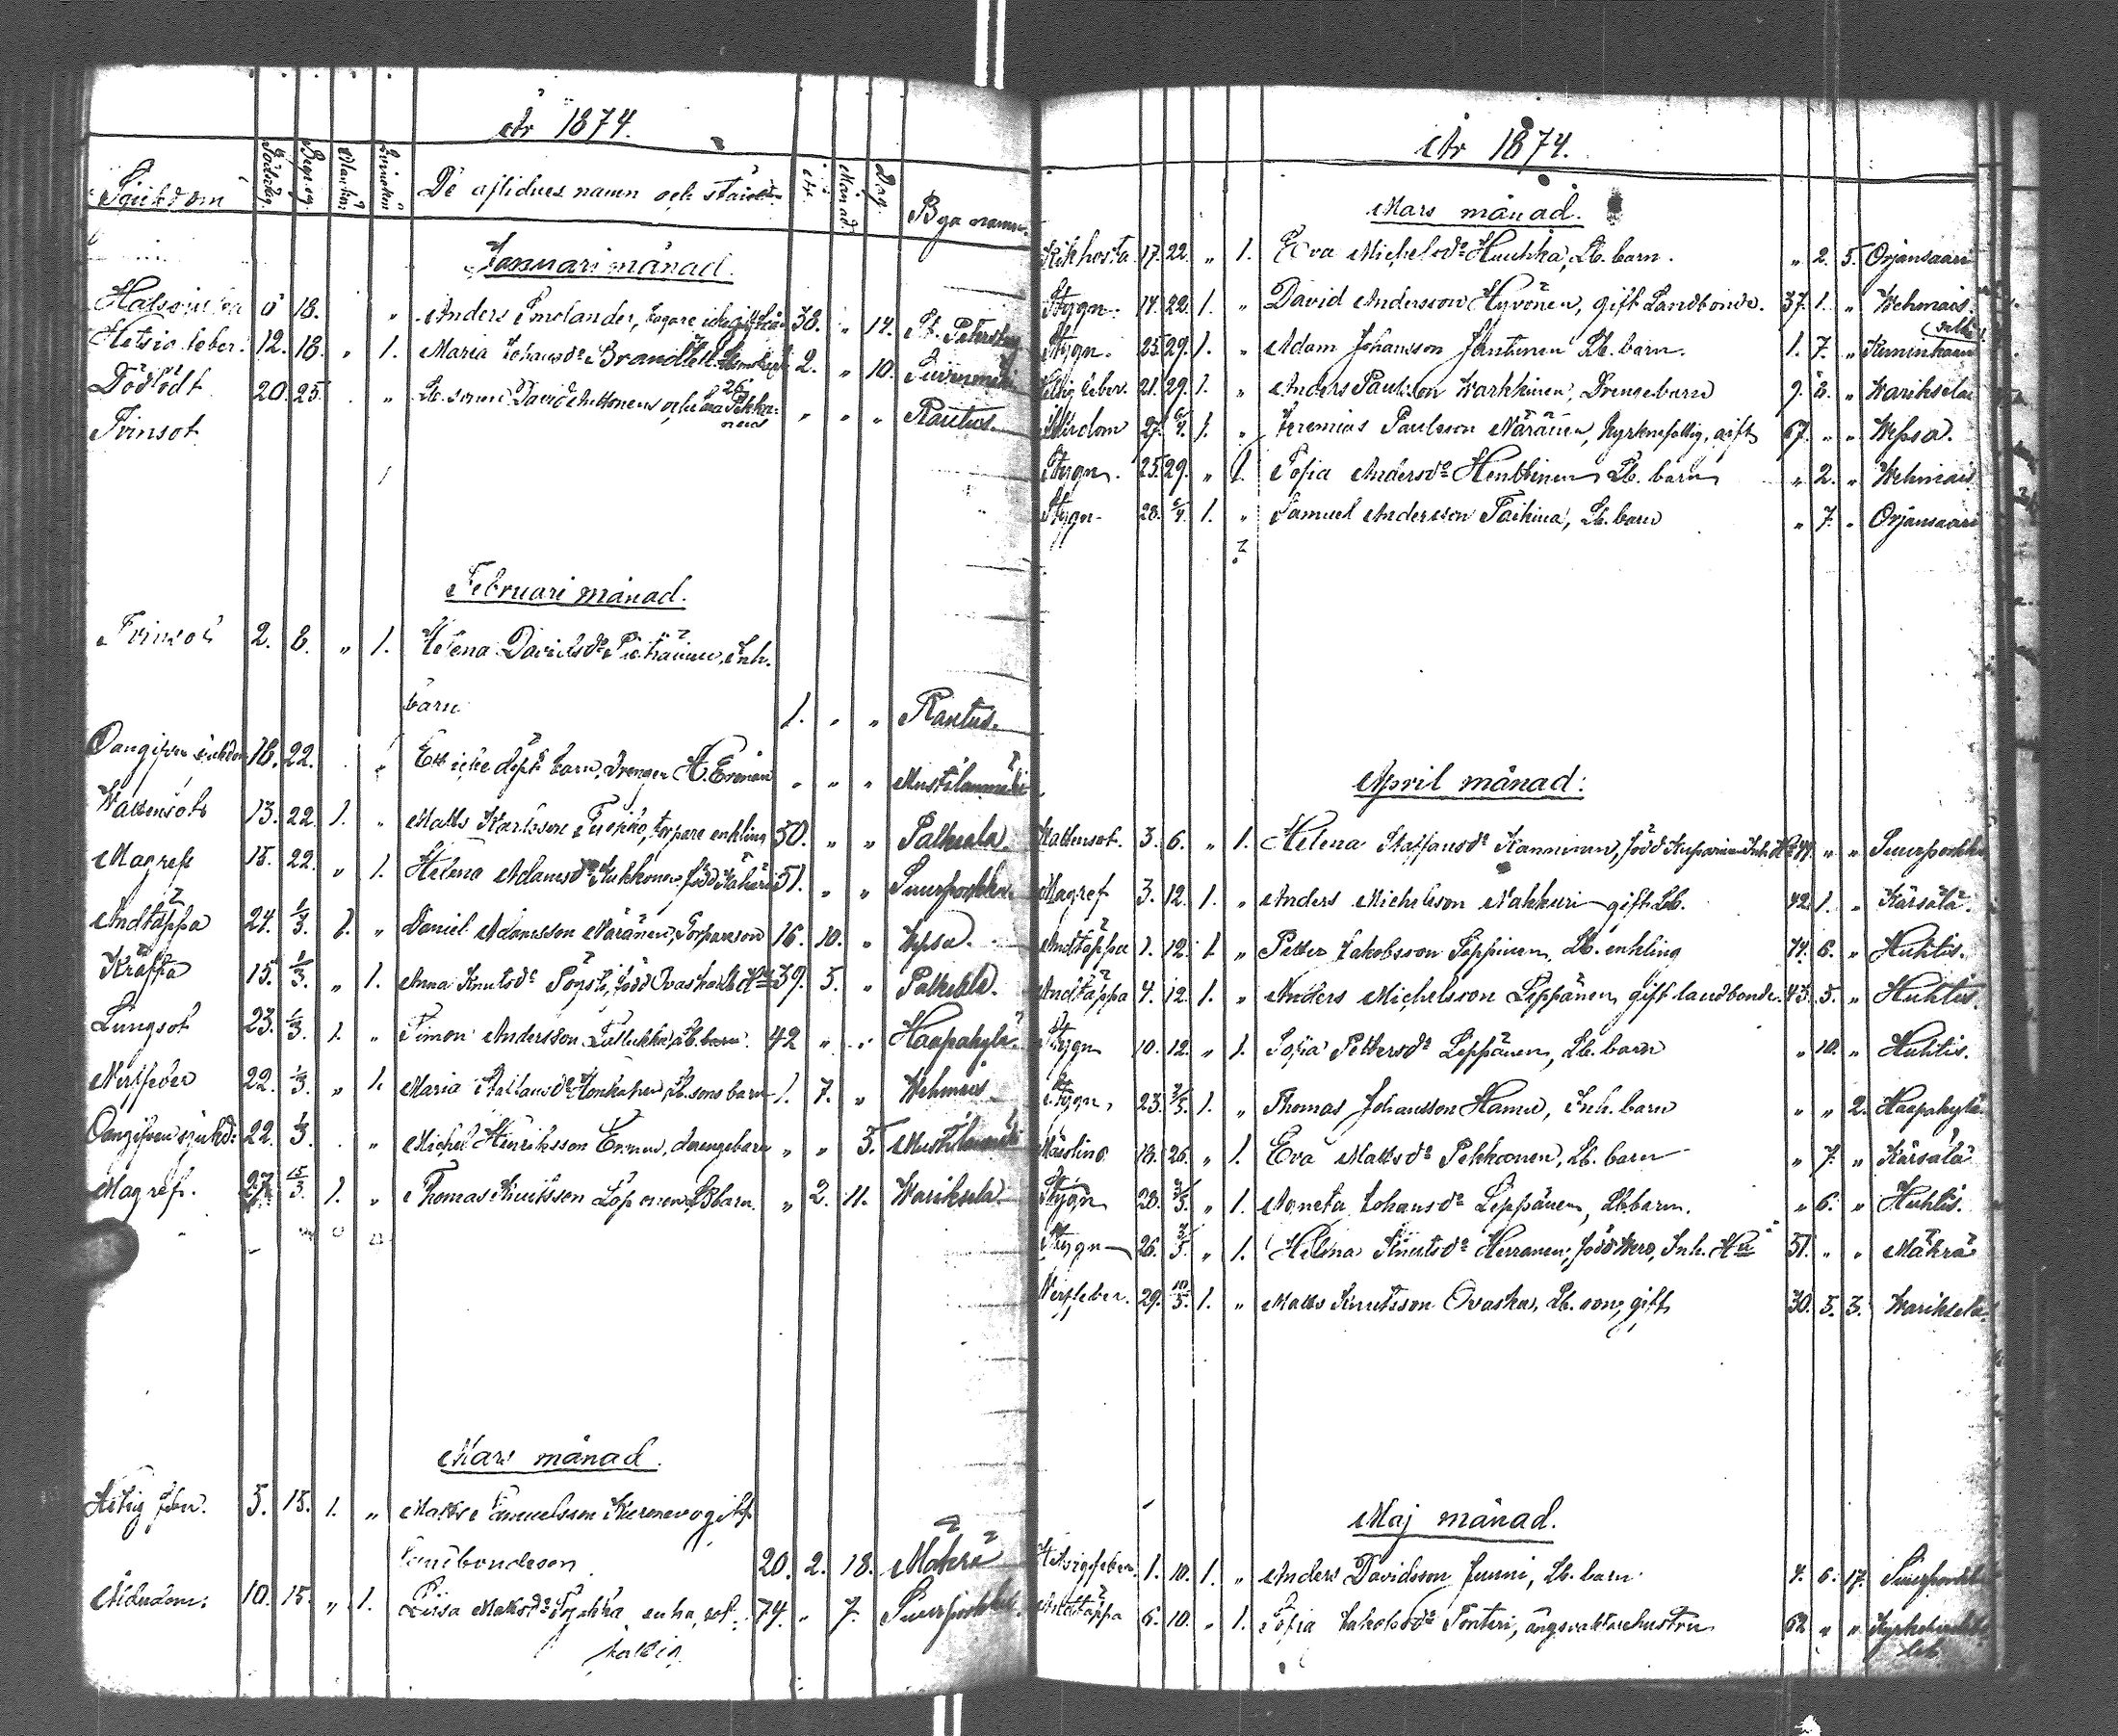 År 1874.
Sjukdom Dödsdag. Begr. dag. Mankön Qvinokön De aflidnes namn och stånd År Månad. Dag. Bya namn.
Januari månad.
18. " Anders Smolander, bagare 38. " 14. St. Petersburg
Hetsig feber. 12. 18. " 1. Maria Johansdr Brandtell 2. " 10.
Dödfödt 20. 25. " Lb. sonen David Anttonens och Pekko- " " " Rautus.
nens
Tvinsot
Februari månad.
Tvinsot 2. 8. " 1. Helena Davidsdr Inh.
barn 1. " " Rautus.
Oangifven sjukdom 18. 22. Ett icke döpt barn, drengen H. Ermen " " " Mustilanmäki
Wattensot 13. 22. 1. " Matts Karlsson torpare enkling 50. " " Palkeala
Magref 18. 22. " 1. Helena Adamsdr Kukkonen född 51. " " Suurporkku
Andtäppa 24. 1/3. 1. " Daniel Adamsson Näränen, Torpareson 16. 10. " Wepsa.
Kräfta 15. 1/3. " 1. Anna Knutsdr Pöysti, född Ovaska Lb. Hu 39. 5. " Palkeala.
Lungsot 23. 1/3. 1. " Simon Andersson Lb. barn 42 " " Haapakylä
Nervfeber 22. 1/3. " 1. Maria Honkanen Lb. sons barn 1. 7. " Wehmais
Oangifven sjukd: 22. 1/3. " Michel Hinriksson Ermen, drengebarn " " 5. Mustilanmäki
Magref. 27. 15/3. 1. " Thomas Knutsson Löponen Lb barn. " 2. 11. Warikselä
Mars månad.
Hetsig feber. 5. 15. 1. " Matts Samuelsson Kiernevo gift
landbondeson 20. 2. 18. Mäkrä
Ålderdom: 10. 15. " 1. Lisa Mattsdr enka, rot- 74. " 7. Suurporkku
År 1874.
Mars månad.
Kikhosta 17. 22. " 1. Eva Michelsdr Huuhka, Lb. barn. " 2. 5. Orjansaari
Stygn. 14. 22. 1. " David Andersson Hyvönen, gift Landbonde. 37. 1. " Wehmais.
Stygn. 25. 29. 1. " Adam Johansson Jantunen Lb. barn. 1. 7. "
Hetsig feber. 21. 29. 1. " Anders Paulsson Karhkinen, Drengebarn 9. 8. " Warikselä
Ålderdom 27. 6/4. 1. " Jeremias Paulsson Näränen, kyrknefattig, gift 67. " " Wepsa.
Stygn. 25. 29. " 1. Sofia Andersdr Henttinen Lb. barn " 2. " Wehmais
Stygn. 28. 6/4. 1. " Samuel Andersson Taikina, Lb. barn " 7. " Orjansaari
April månad:
Wattensot. 3. 6. " 1. Helena Staffansdr Kanninen, född Kuparinen Inh. Hu 44. " " Suurporkku
Magref 3. 12. 1. " Anders Michelsson Nahkuri gift Lb. 42. 1. " Kärsälä.
Andtäppa 1. 12. 1 " Petter Jakobsson Seppinen, Lb. enkling 74. 6. " Huhtis.
Andtäppa 4. 12. 1. " Anders Michelsson Leppänen, gift landbonde. 43. 5. " Huhtis.
Stygn 10. 12. " 1. Sofia Pettersdr Leppänen, Lb. barn " 10. " Huhtis.
Stygn, 23. 3/5. 1. " Thomas Johansson Hanni, Inh. barn " " 2. Haapakylä
Mäsling 18. 26. " 1. Eva Mattsdr Pekkonen, Lb. barn " 7. " Kärsälä
Stygn 28. 3/5. " 1. Agneta Johansdr Leppänen, Lb. barn. " 6. " Huhtis.
Stygn 26. 3/5. " 1. Helena Knutsdr Herranen, född Wero, Inh. Hu 51. " " Mäkrä
Nervfeber. 29. 10/5. 1. " Matts Knutsson Ovaska, Lb. son, gift 30. 5. 3. Warikselä.
Maj månad.
Hetsig feber. 1. 10. 1. " Anders Davidsson Junni, Lb. barn 4. 6. 17. Suurporkku
Andtäppa 6. 10. " 1. Sofia Jakobsdr Pönteri, ängsvaktarehustru 62 " "